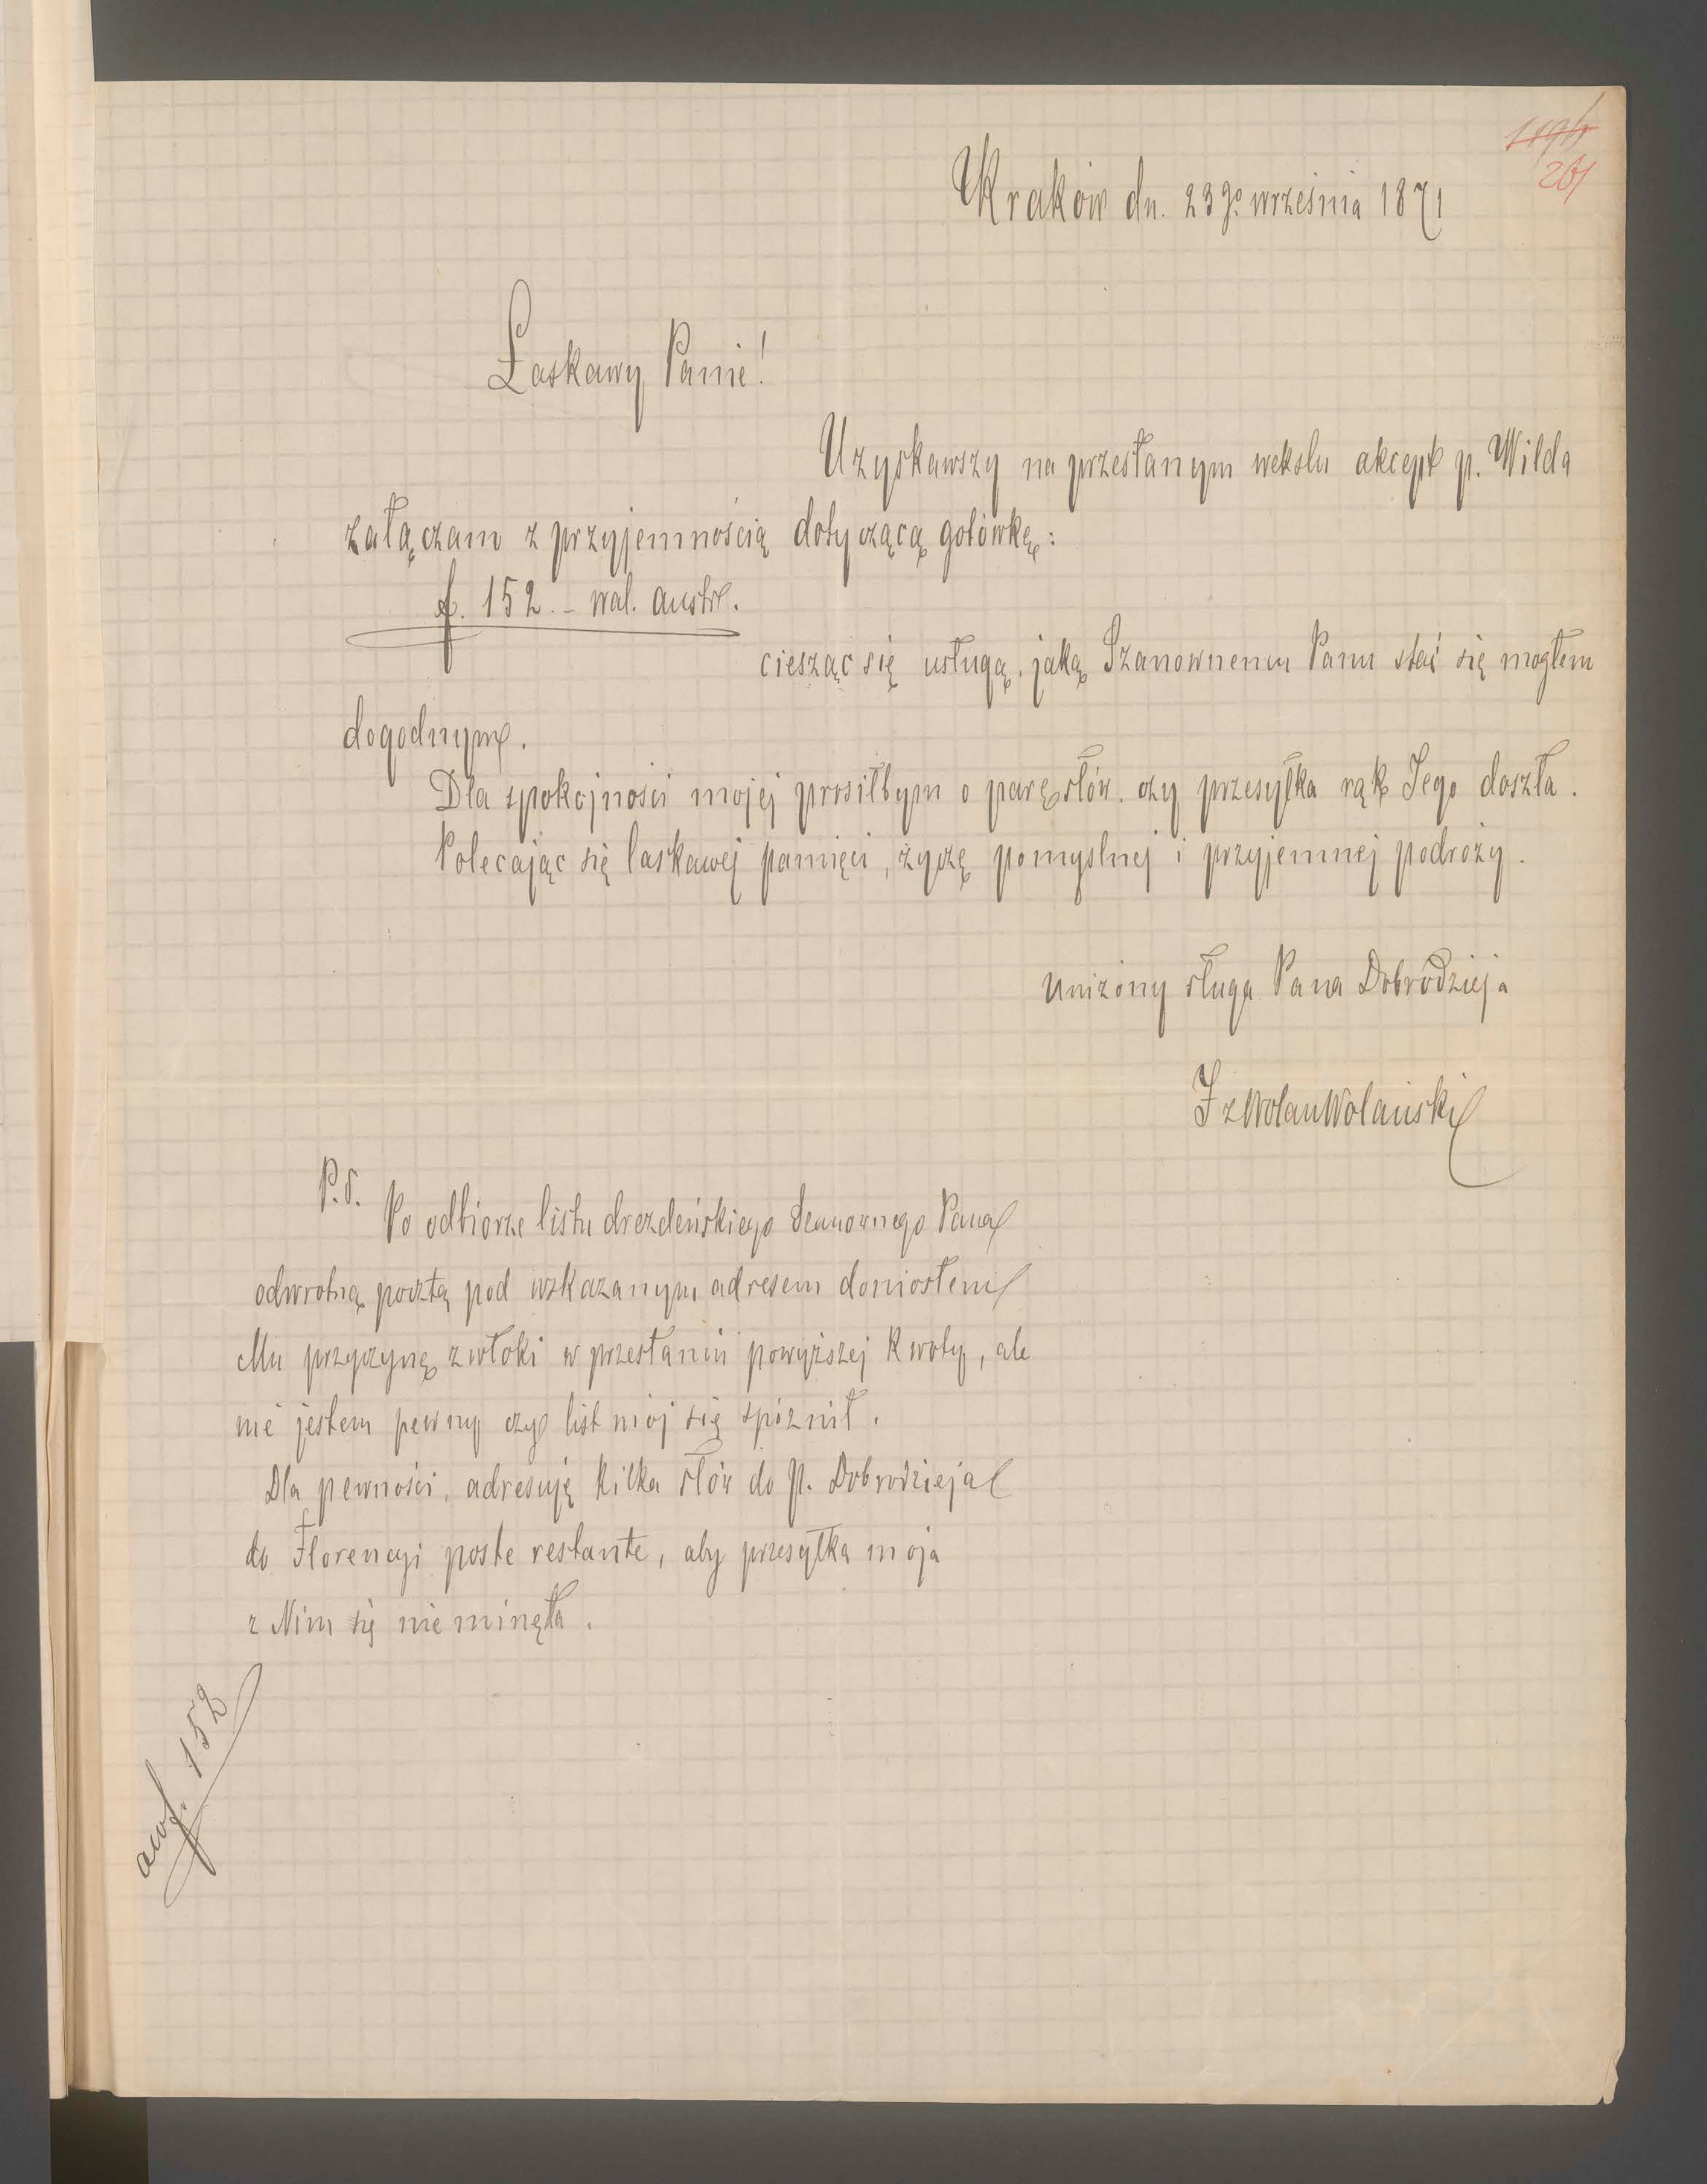 261
Kraków dn. 23go września 1871
Łaskawy Panie!
Uzyskawszy na przesłanym wekslu akcept p. Wilda
załączam z przyjemnością dotyczącą gotówkę:
f. 152.– wal. austr.
ciesząc się usługą, jaką Szanownemu Panu stać się mogłem
dogodnym.
Dla spokojności mojej prosiłbym o parę słów, czy przesyłka rąk Jego doszła.
Polecając się łaskawej pamięci, życzę pomyslnej i przyjemnej podróży.
Uniżony sługa Pana Dobrodzieja
F z Wolan Wolański
P.S.
Po odbiorze listu drezdeńskiego Szanownego Pana
odwrotną pocztą pod wskazanym adresem doniosłem
Mu przyczynę zwłoki w przesłaniu powyższej kwoty, ale
nie jestem pewny czy list mój się spóznił.
Dla pewności, adresuję kilka słów do P. Dobrodzieja
do Florencyi poste restante, aby przesyłka moja
z Nim się nie minęła.
awf. 152